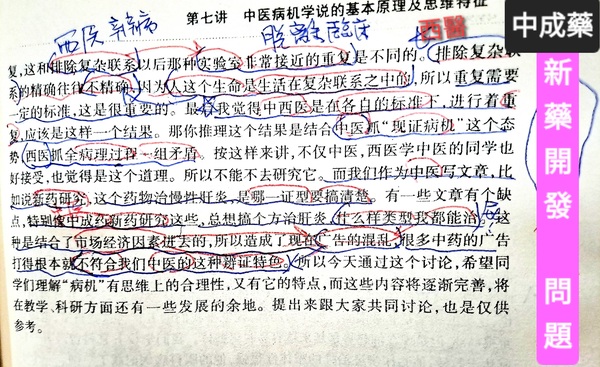 第七讲 中医病机学说的基本原理及思维特征
西医 辛病
脱離臨床
西醫
中成藥
新藥開發 問題
复,这和排除复杂联系以后那种实验室非常接近的重复是不同的。排除复杂联
系的精确往往不精确,因为人这个生命是生活在复杂联系之中的,所以重复需要
一定的标准,这是很重要的。最后我觉得中西医是在各自的标准下,进行着重
复,应该是这样一个结果。那你推理这个结果是结合中医抓“现证病机”这个态
势,西医抓全病理过程一组矛盾。按这样来讲,不仅中医,西医学中医的同学也
好接受,也是这个道理。所以不能不去研究它。而我们作为中医写文章,比
如说新药研究,这个药物治慢性肝炎,是哪一证型要搞清楚。有一些文章有个缺
点,特别像中成药新药研究这些,总想搞个方治肝炎,什么样类型我都能治。这
种是结合了市场经济因素进去的,所以造成了现在广告的混乱,很多中药的广告
打得根本就不符合我们中医的这种辨证特色。所以今天通过这个讨论,希望同
学们理解“病机”有思维上的合理性,又有它的特点,而这些内容将逐渐完善,将
在教学、科研方面还有一些发展的余地。提出来跟大家共同讨论,也是仅供
参考。